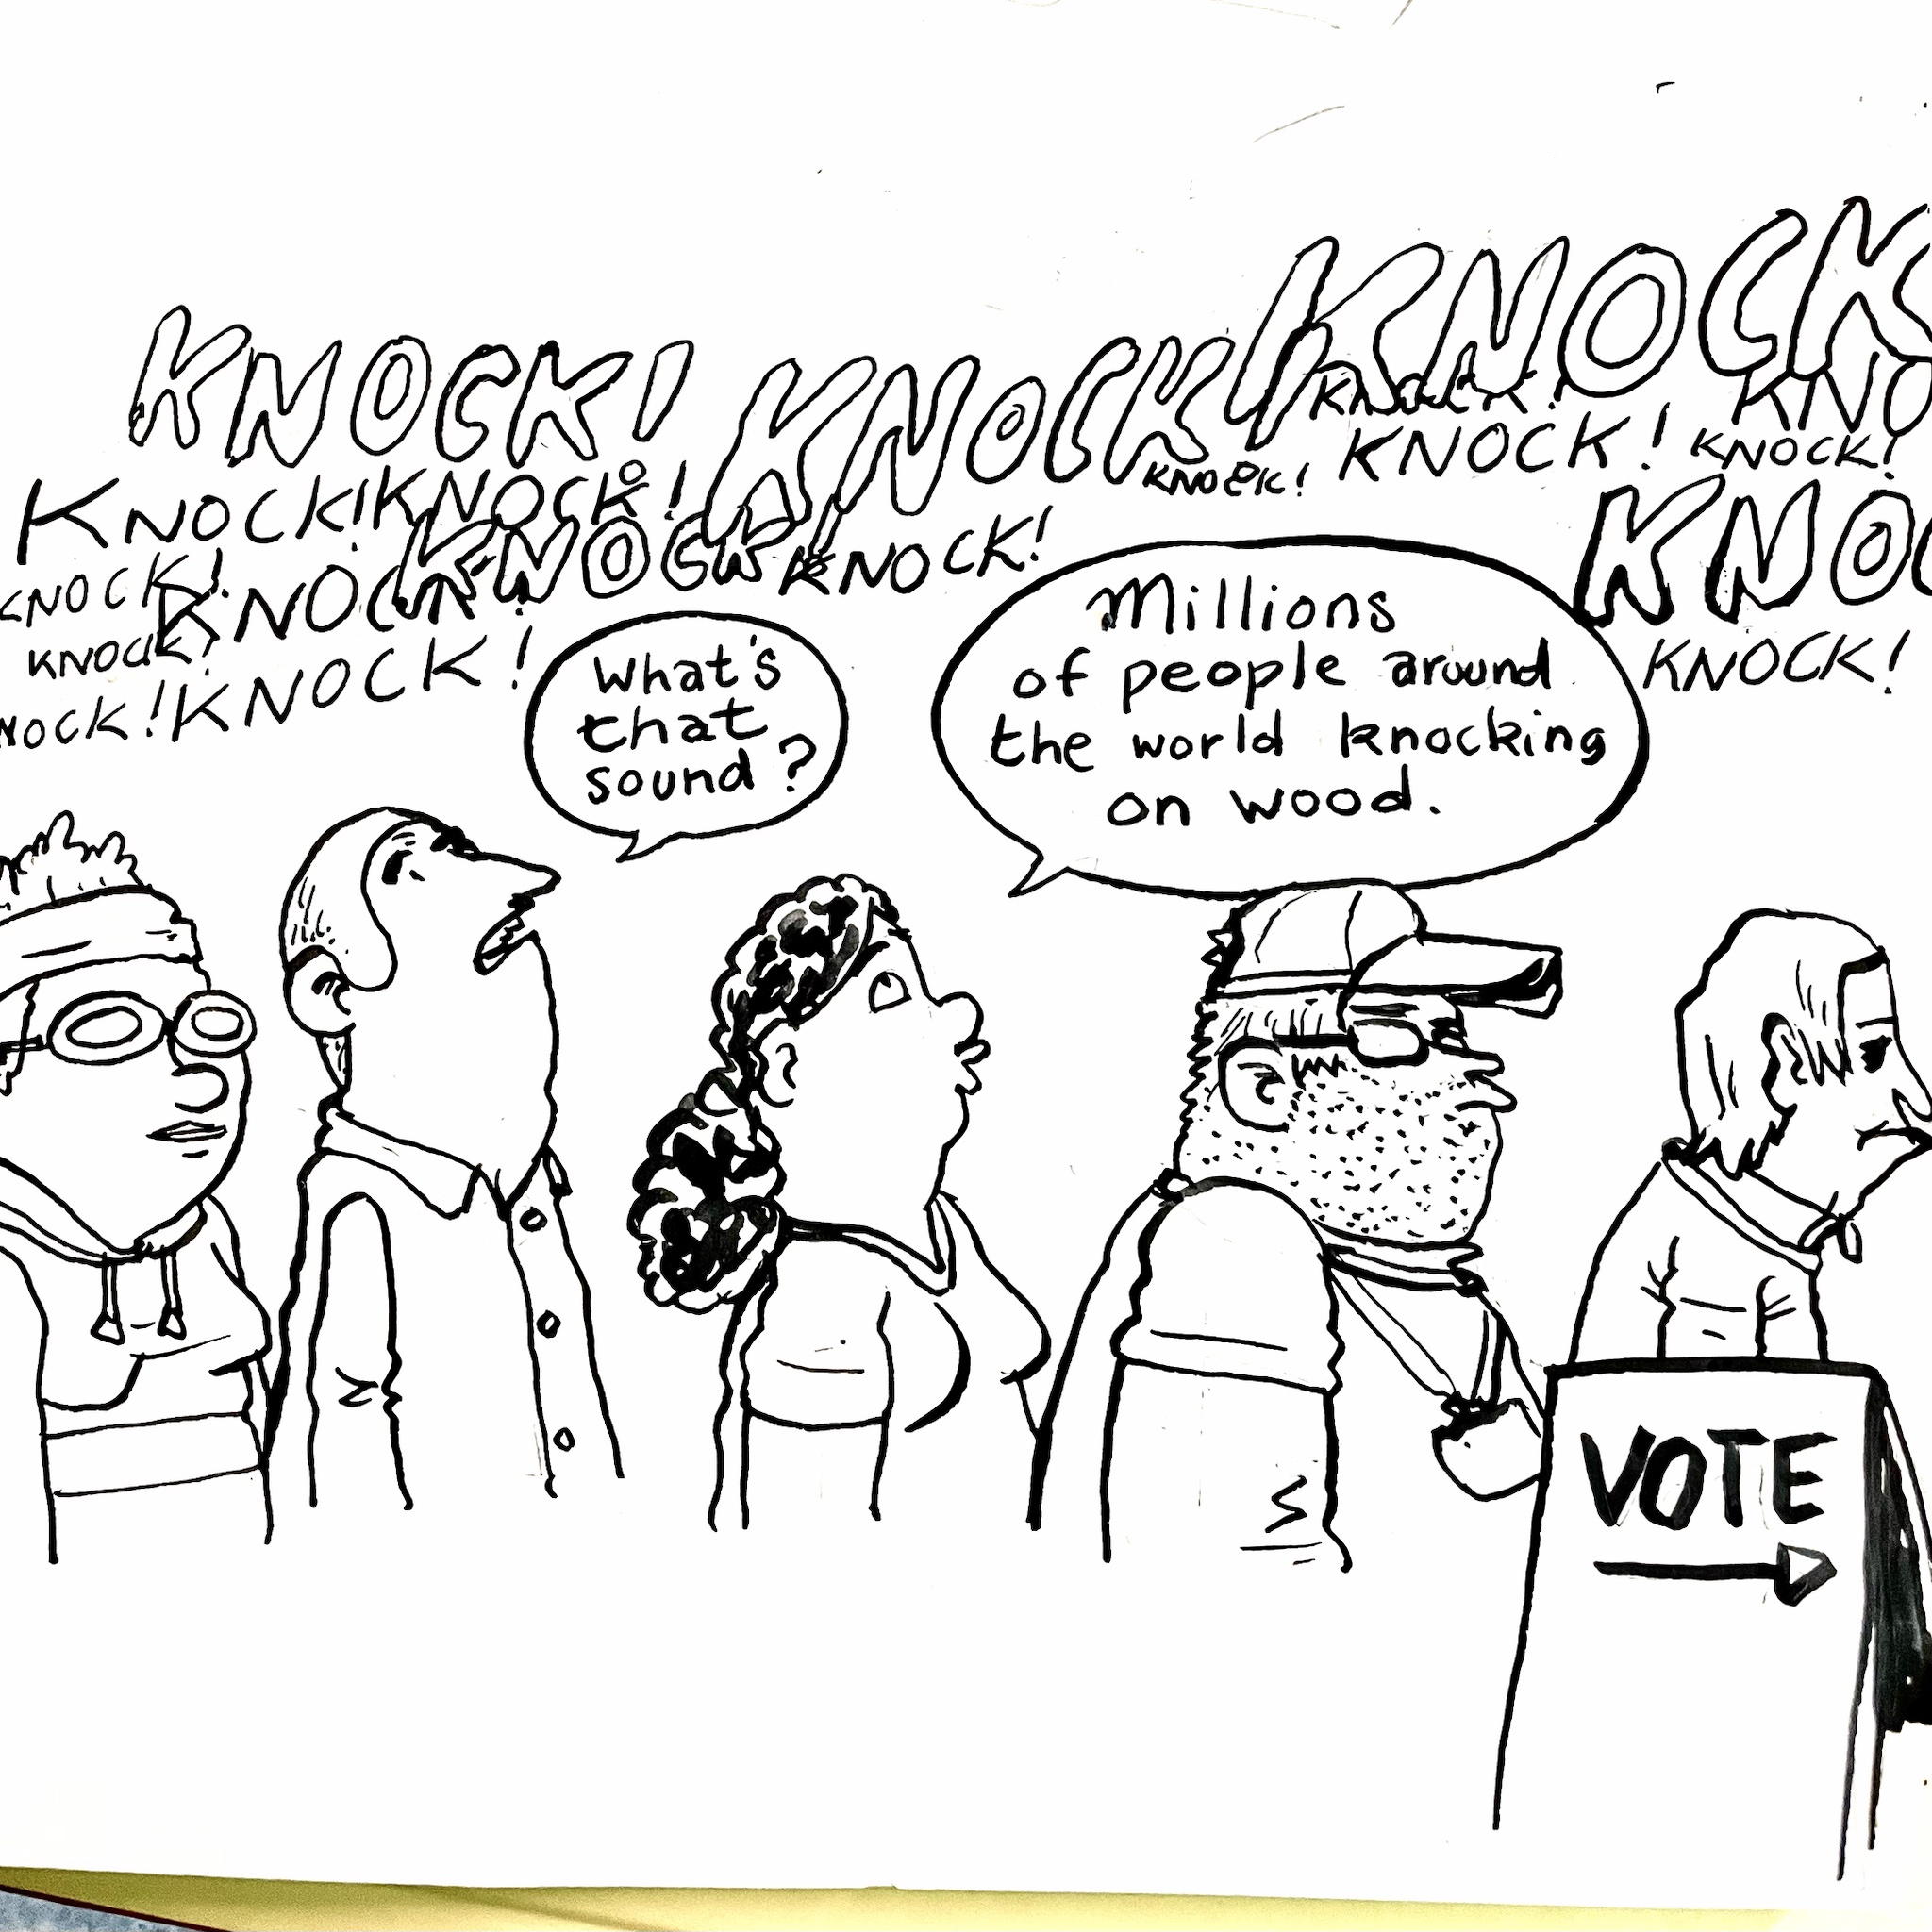 KNOCK
KNOCK! KNOCK!
KNOCK!
KNOCK! KNOCK! KNOCK! KNOCK! KNOCK!
KNOCK! KNOCK! KNOCK!
KNOCK! KNOCK!
KNOCK! KNOCK!
KNOCK!
KNOCK!
What's
that
sound?
Millions
of people around
the world knocking
on wood.
VOTE